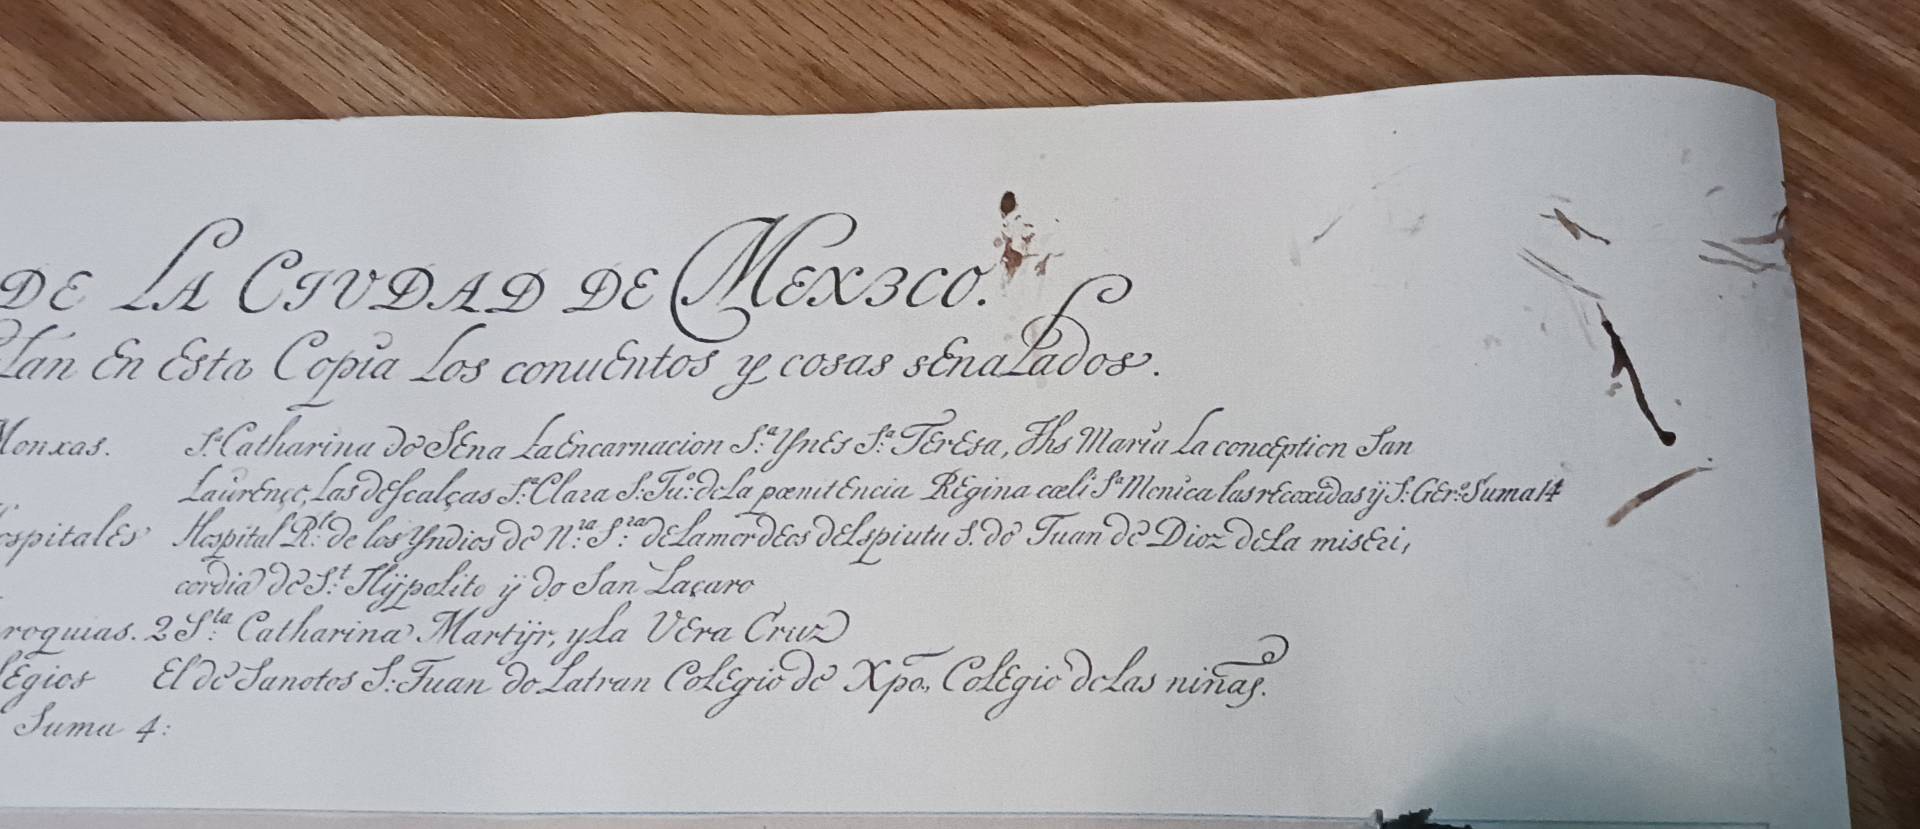 DE LA CIVDAD DE MEX3CO.
En Esta Copia Los conuentos y cosas sEnalados.
Monxas. S.ª Catharina de SEna La Encarnacion S.ª Ynes S.ª TEREsa, Jhs Maria La conception San
Laurenço, Las dEscalças S.ª Clara S. Ju.º de La pœnitEncia REgina cœli S.ª Monica las recoxidas ÿ S. GEr.º Suma 14
Hospital R.l de los Yndios de N.ra S.ra de Lamor de Dios
cordia de S.t Hÿpolito ÿ de San Laçaro
2 S.ta Catharina Martÿr, y La VEra Cruz
El de Sanctos S. Juan de Latran ColEgio de Xpo., ColEgio de las niñas.
Suma 4: